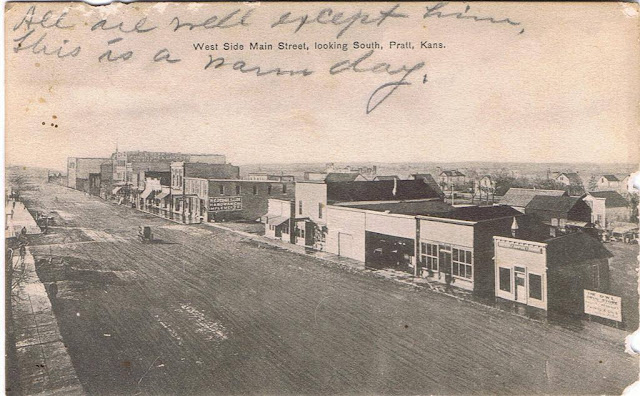 All are well except him,
this is a warm day.
West Side Main Street, looking South, Pratt, Kans.